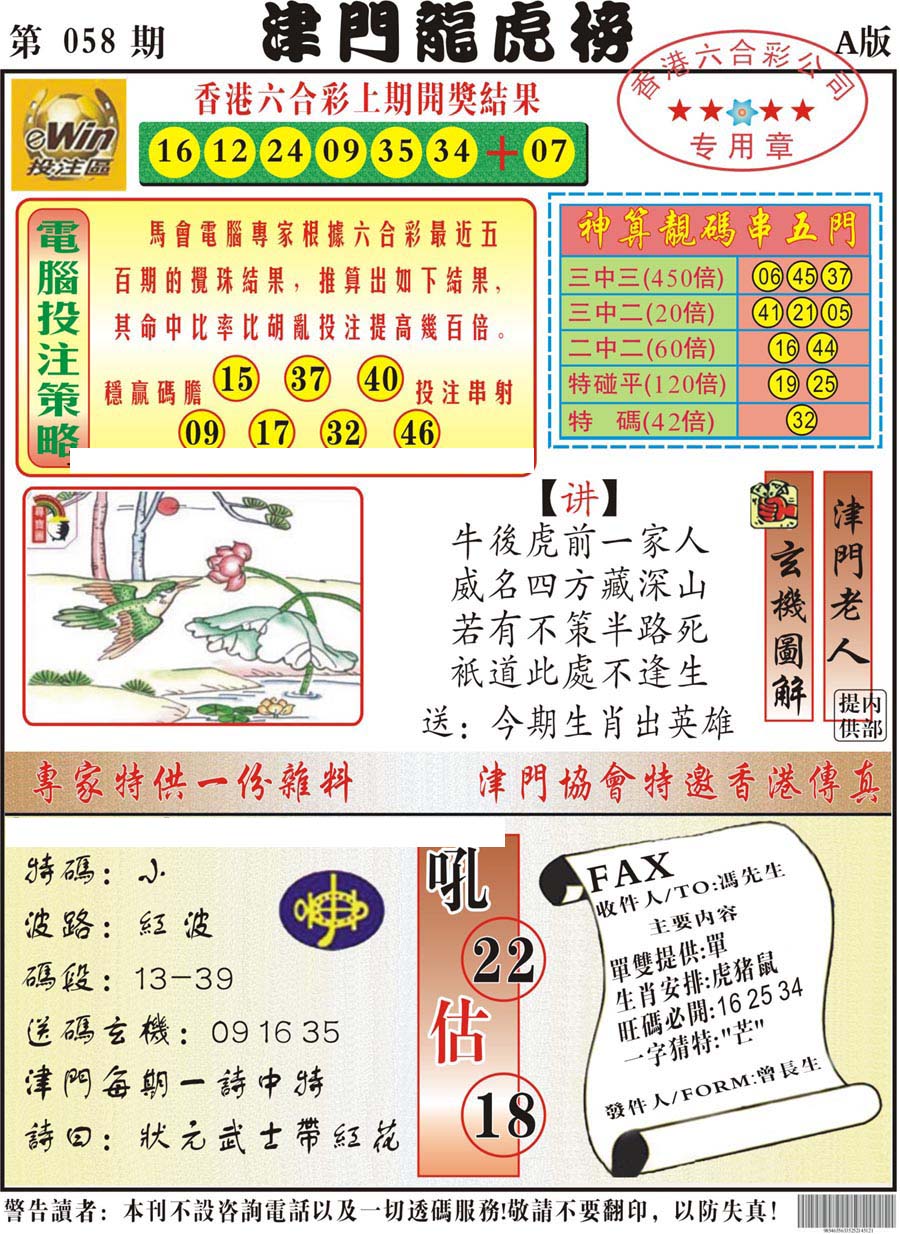 第 058 期
津門龍虎榜
A版
eWin
投注區
香港六合彩上期開獎結果
16 12 24 09 35 34 + 07
香港六合彩公司
专用章
電腦投注策略
馬會電腦專家根據六合彩最近五
百期的攪珠結果，推算出如下結果，
其命中比率比胡亂投注提高幾百倍。
穩贏碼膽 15 37 40 投注串射
09 17 32 46
神算靚碼串五門
三中三(450倍) 06 45 37
三中二(20倍) 41 21 05
二中二(60倍) 16 44
特碰平(120倍) 19 25
特 碼(42倍) 32
尋寶圖
【讲】
牛後虎前一家人
威名四方藏深山
若有不策半路死
衹道此處不逢生
送：今期生肖出英雄
玄機圖解
津門老人
內部提供
專家特供一份雜料
津門協會特邀香港傳真
特碼：小
波路：紅波
碼段：13-39
送碼玄機：09 16 35
津門每期一詩中特
詩曰：狀元武士帶紅花
吼
22
估
18
FAX
收件人/TO:馮先生
主要内容
單雙提供:單
生肖安排:虎猪鼠
旺碼必開:16 25 34
一字猜特:"芒"
發件人/FORM:曾長生
警告讀者：本刊不設咨詢電話以及一切透碼服務!敬請不要翻印，以防失真!